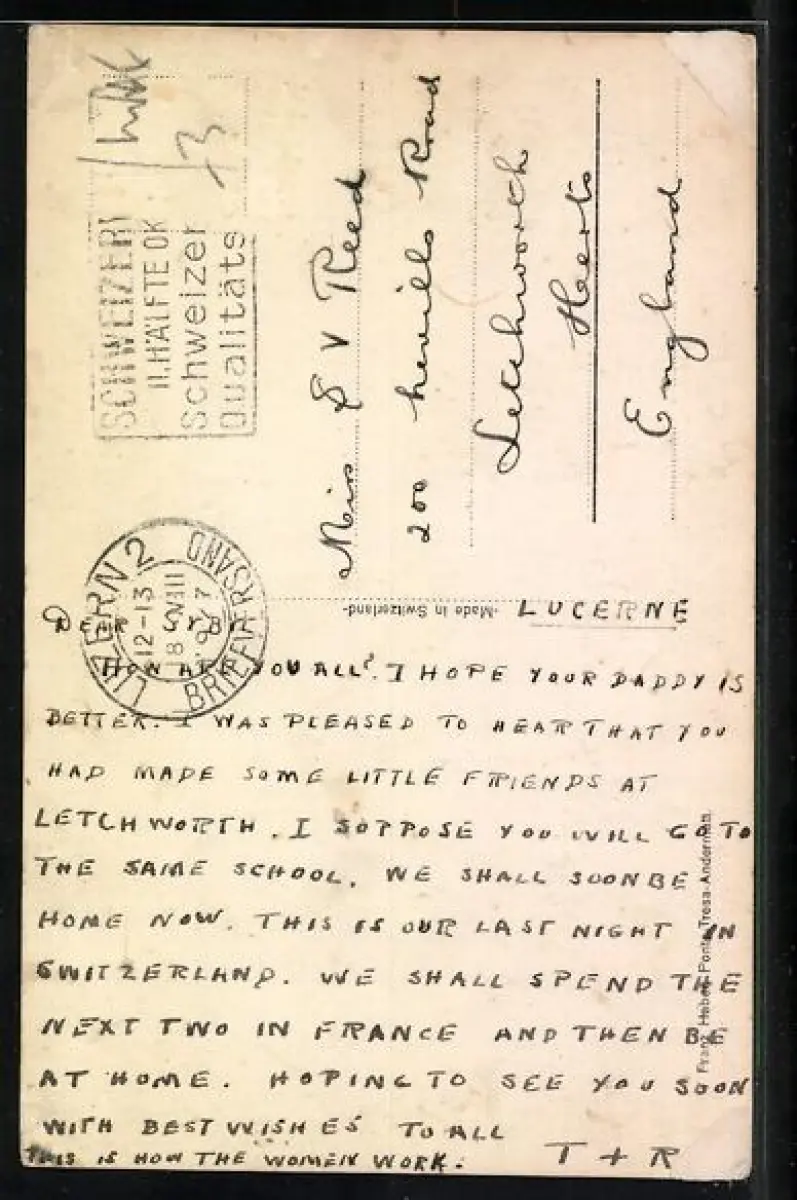 SCHWEIZER
II. HÄLFTE OK
Schweizer
Qualitäts
13
Miss S V Reed
200 Road
Letchworth
Herts
England
LUZERN 2
12-13
8 VIII
BRIEFVERSAND
-Made in Switzerland-
LUCERNE
DEAR SYBIL
HOW ARE YOU ALL? I HOPE YOUR DADDY IS
BETTER. I WAS PLEASED TO HEAR THAT YOU
HAD MADE SOME LITTLE FRIENDS AT
LETCHWORTH. I SOPPOSE YOU WILL GO TO
THE SAME SCHOOL. WE SHALL SOON BE
HOME NOW. THIS IS OUR LAST NIGHT IN
SWITZERLAND. WE SHALL SPEND THE
NEXT TWO IN FRANCE AND THEN BE
AT HOME. HOPING TO SEE YOU SOON
WITH BEST WISHES TO ALL
T + R
THIS IS HOW THE WOMEN WORK.
Franz Ponte Tresa-Andermatt.